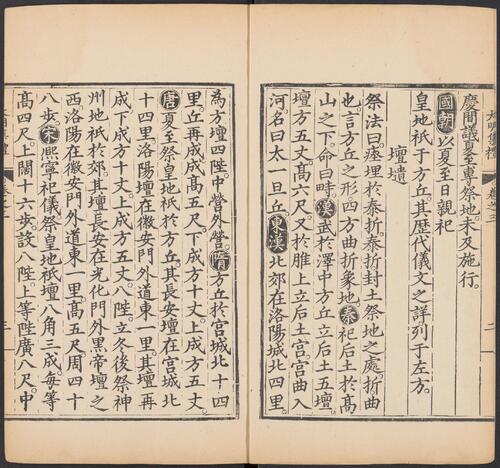 慶間議夏至專祭地。未及施行。
國朝以夏至日親祀
皇地祇于方丘。其歷代儀文之詳列于左方。
壇壝
祭法曰。瘞埋於泰折。泰折封土祭地之處。折曲
也。言方丘之形。四方曲折象地。秦祀后土於髙
山之下。命曰畤。漢武於澤中方丘立后土五壇。
壇方五丈。髙六尺。又於脽上立后土宮。宮曲入
河。名曰太一旦丘。東漢北郊在洛陽城北四里。
為方壇四陛。中營外營。隋方丘於宮城北十四
里。丘再成。成髙五尺。下成方十丈。上成方五丈。
唐夏至祭皇地祇於方丘。其長安壇在宮城北
十四里。洛陽壇在徽安門外道東一里。其壇再
成。下成方十丈。上成方五丈。八陛。立冬後祭神
州地祇於郊。其壇長安在光化門外黑帝壇之
西。洛陽在徽安門外道東一里。髙五尺。周四十
八步。宋熙寧祀儀。祭皇地祇壇八角三成。每等
髙四尺。上闊十六步。設八陛。上等陛廣八尺。中